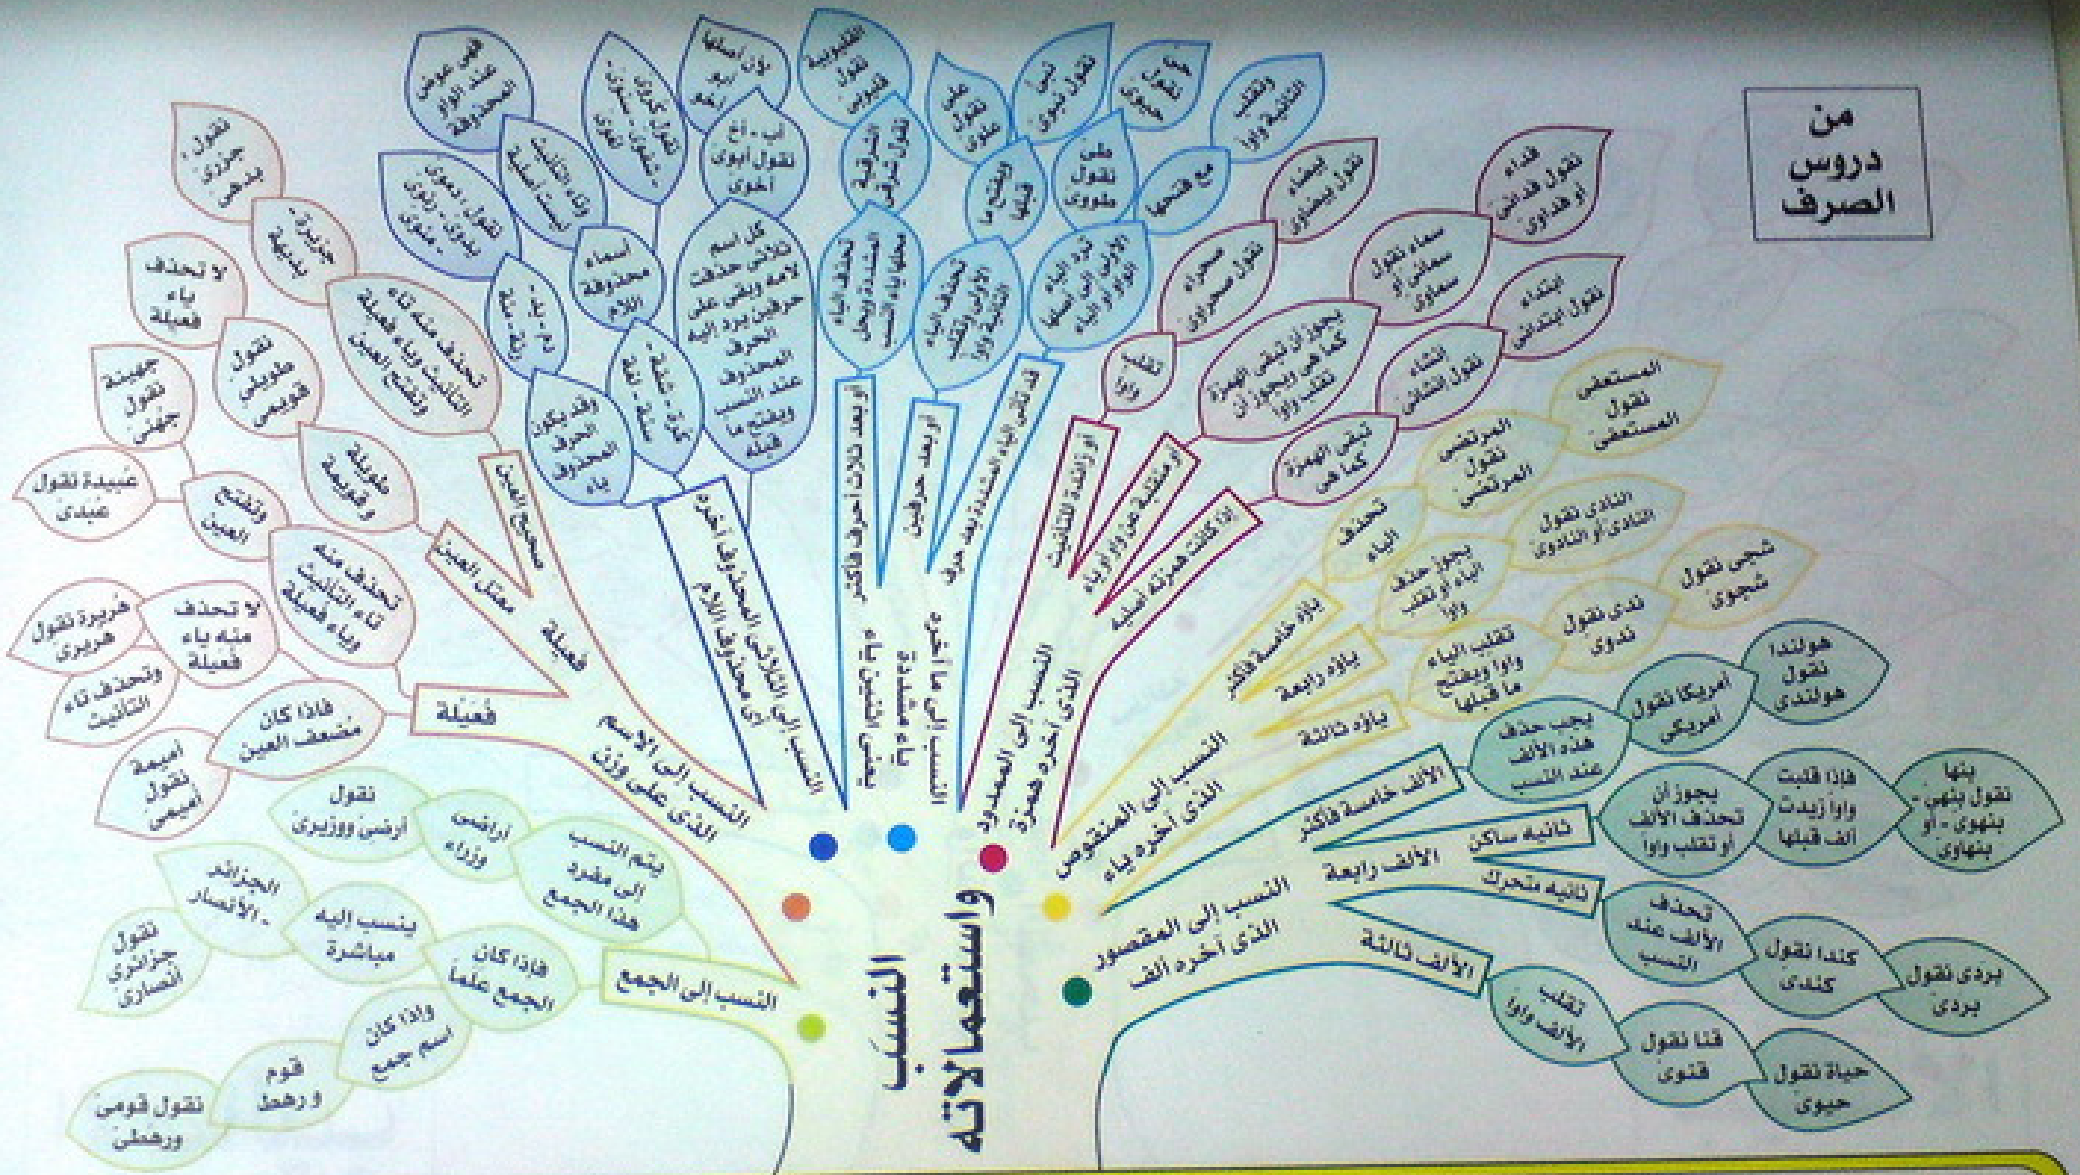 من
دروس
الصرف
النسب
واستعمالاته
النسب إلى المقصور
الذى أخره ألف
الألف ثالثة
تقلب
الألف واوا
قنا نقول
قنوى
حياة نقول
حيوى
الألف رابعة
ثانيه متحرك
تحذف
الألف عند
النسب
كندا نقول
كندى
بردى نقول
بردى
ثانيه ساكن
يجوز أن
تحذف الألف
أو تقلب واوا
فإذا قلبت
واوا زيدت
ألف قبلها
بنها
نقول بنهى -
بنهوى - أو
بنهاوى
الألف خامسة فأكثر
يجب حذف
هذه الألف
عند النسب
أمريكا نقول
أمريكى
هولندا
نقول
هولندى
النسب إلى المنقوص
الذى أخره ياء
ياؤه ثالثة
تقلب الياء
واوا ويفتح
ما قبلها
ندى نقول
ندوى
شجى نقول
شجوى
ياؤه رابعة
يجوز حذف
الياء أو تقلب
واوا
النادى نقول
النادى أو النادوى
ياؤه خامسة فأكثر
تحذف
الياء
المرتضى
نقول
المرتضى
المستعفى
نقول
المستعفى
النسب إلى الممدود
الذى أخره همزة
إذا كانت همزته أصلية
تبقى الهمزة
كما هى
إنشاء
نقول إنشائى
ابتداء
نقول ابتدائى
أو منقلبة عن واو أو ياء
يجوز أن تبقى الهمزة
كما هى ويجوز أن
تقلب واوا
سماء نقول
سمائى أو
سماوى
فداء
نقول فدائى
أو فداوى
أو زائدة للتأنيث
تقلب
واوا
صحراء
نقول صحراوى
بيضاء
نقول بيضاوى
النسب إلى ما أخره
ياء مشددة
يعنى اثنين ياء
قد تأتى الياء المشددة بعد حرف
ترد الياء
الأولى إلى أصلها
الواو أو الياء
مع فتحها
وتقلب
الثانية واوا
طى
نقول
طووى
حى
نقول
حيوى
أو بعد حرفين
تحذف الياء
الأولى وتقلب
الثانية واوا
ويفتح ما
قبلها
على
نقول
علوى
نبى
نقول نبوى
أو بعد ثلاث أحرف فأكثر
تحذف الياء
المشددة ويحل
محلها ياء النسب
الشرقية
نقول شرقى
القليوبية
نقول
قليوبى
النسب إلى الثلاثى المحذوف أخره
أى محذوف اللام
كل اسم
ثلاثى حذفت
لامه وبقى على
حرفين يرد إليه
الحرف
المحذوف
عند النسب
ويفتح ما
قبله
أب - أخ
نقول أبوى
أخوى
لأن أصلها
أبو
أخو
وقد يكون
الحرف
المحذوف
ياء
كرة - شفة -
سنة - لغة
أسماء
محذوفة
اللام
وتاء التأنيث
ليست أصلية
فهى عوض
عند الواو
المحذوفة
نقول كروى
- شفوى - سنوى -
لغوى
دم - يد -
رئة - مئة
نقول - دموى
يدوى - رئوى
- مئوى
النسب إلى الاسم
الذى على وزن
فعيلة
صحيح العين
تحذف منه تاء
التأنيث وياء فعيلة
وتفتح العين
جزيرة -
بديهة
نقول -
جزرى
بدهى
معتل العين
طويلة
وقويمة
نقول
طويلى
قويمى
لا تحذف
ياء
فعيلة
فعيلة
تحذف منه
تاء التأنيث
وياء فعيلة
وتفتح
العين
جهينة
نقول
جهنى
عبيدة نقول
عبدى
فإذا كان
مضعف العين
لا تحذف
منه ياء
فعيلة
وتحذف تاء
التأنيث
هريرة نقول
هريرى
أميمة
نقول
أميمى
النسب إلى الجمع
يتم النسب
إلى مفرد
هذا الجمع
أراضى
وزراء
نقول
أرضى ووزيرى
فإذا كان
الجمع علما
ينسب إليه
مباشرة
الجزائر
- الأنصار
نقول
جزائرى
أنصارى
وإذا كان
اسم جمع
قوم
ورهط
نقول قومى
ورهطى